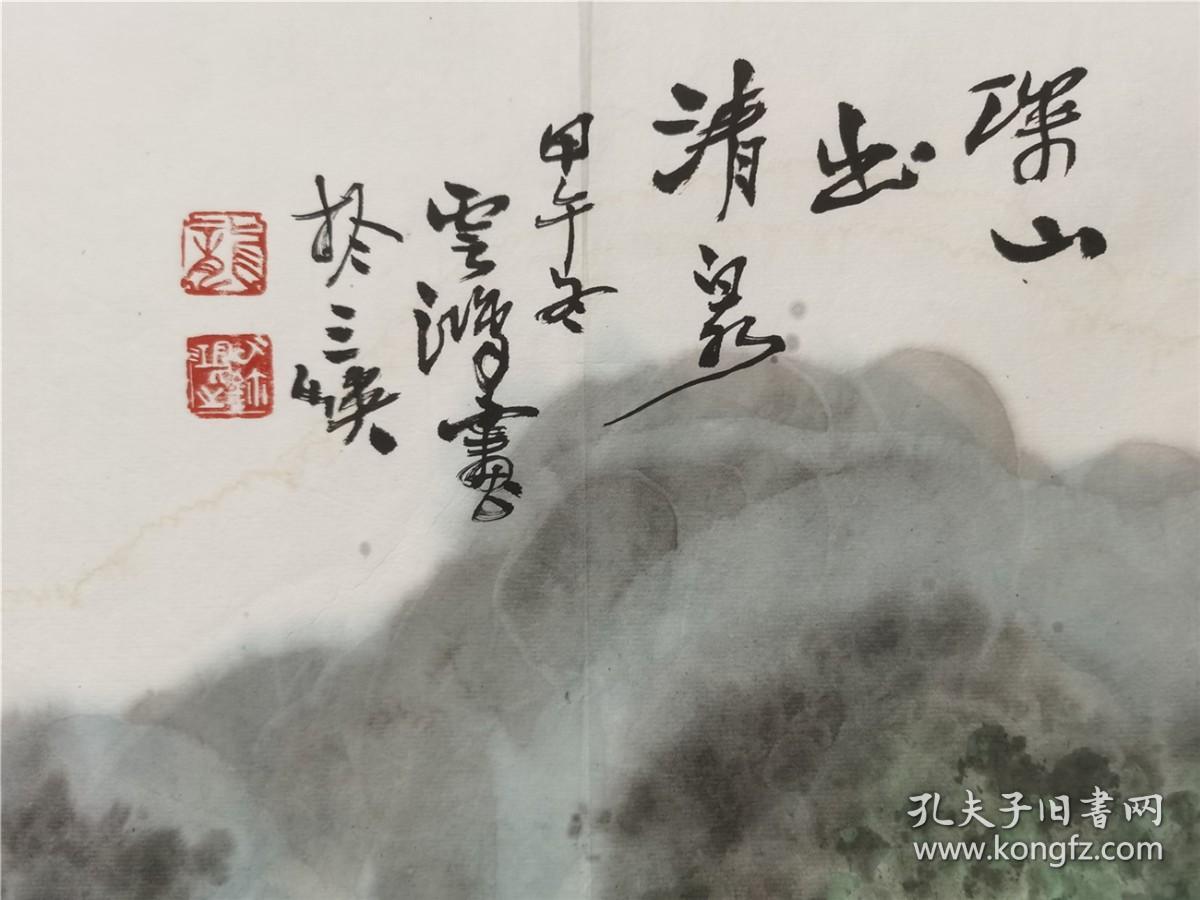 深山
出
清泉
甲午冬
雲鴻畫
於三峡
孔夫子旧書网
www.kongfz.com